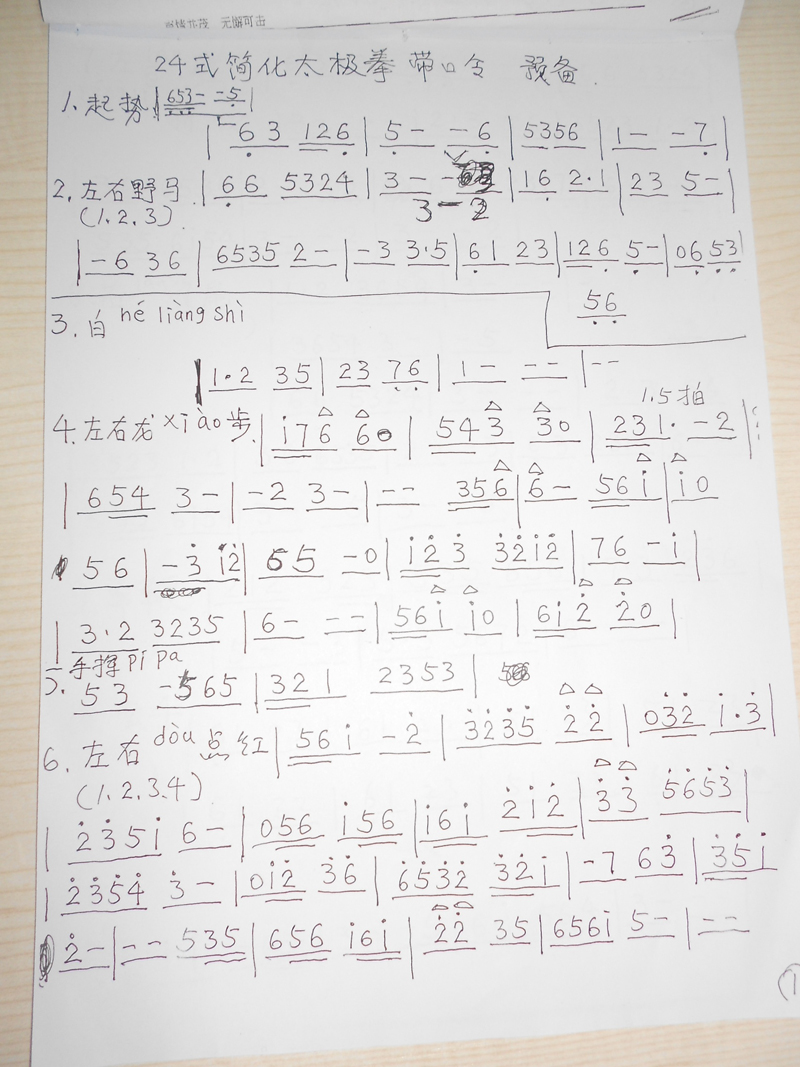 无懈可击
24式简化太极拳 带口令 预备
1. 起势 |653- -5|
|63 126|5- -6|5356|1- -7|
2. 左右野马 |66 5324|3- -|16 2·1|23 5-|
(1.2.3) 3-2
|-6 36|6535 2-|-3 3·5|61 23|126 5-|0653|
56
3. 白 hé liàng shì
|1·2 35|23 76|1- --|--
1.5拍
4. 左右龙 xiào步 |i76 60|543 30|231· -2|
|654 3-|-2 3-|-- 356|6- 56i|i0
56|-3 i2|65 -0|i23 32i2|76 -i|
|3·2 3235|6- --|56i i0|6i2 20|
5. 手挥 pí pa
53 -565|321 2353|
6. 左右 dòu 点 红 |56i -2|3235 22|032 i·3|
(1.2.3.4)
|235i 6-|056 i56|i6i 2i2|33 5653|
|2354 3-|0i2 36|6532 32i|-7 63|35i
2-|-- 535|656 i6i|22 35|656i 5-|--
1